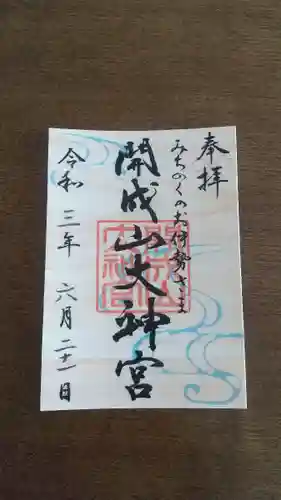 奉拝
みちのくのお伊勢さま
開成山大神宮
開成山
大神宮
令和三年六月二十一日